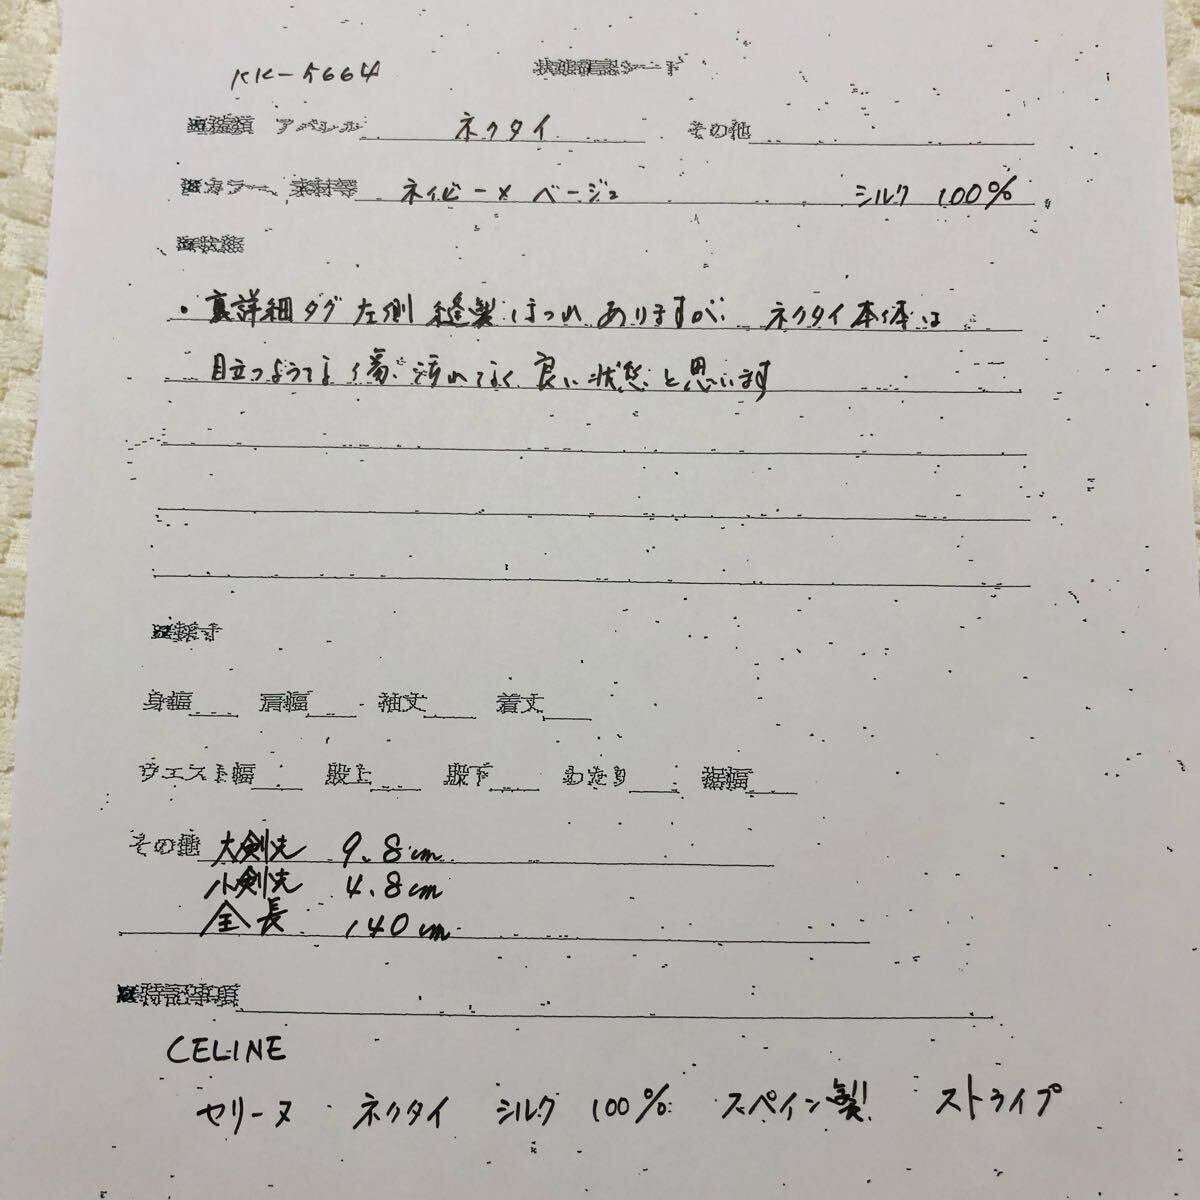 KK-5664 状態確認シート
※種類 アパレル ネクタイ その他
※カラー、素材等 ネイビー×ベージュ シルク 100%
※状態
・裏詳細タグ 左側 縫製 ほつれ ありますが、ネクタイ本体は
目立つような傷、汚れなく、良い状態と思います
※採寸
身幅 肩幅 袖丈 着丈
ウエスト幅 股上 股下 わたり 裾幅
その他 大剣先 9.8cm
小剣先 4.8cm
全長 140cm
※特記事項
CELINE
セリーヌ ネクタイ シルク 100% スペイン製 ストライプ